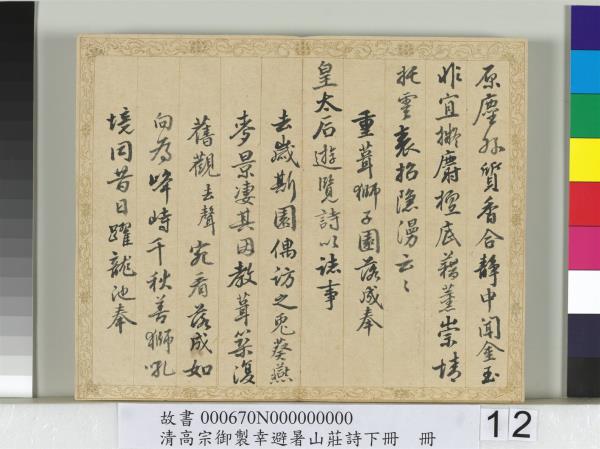 原塵外質香合靜中聞金玉
非宜擬麝檀底藉薰崇情
托雲表招隐漫云〻
重葺獅子園落成奉
皇太后遊覽詩以誌事
去歲斯園偶訪之兎葵燕
麥景凄其因教葺築復
舊觀去聲宛看落成如
向為峰峙千秋善獅吼
境同昔日躍龍池奉
故書 000670N000000000
清高宗御製幸避暑山莊詩下冊 冊
12